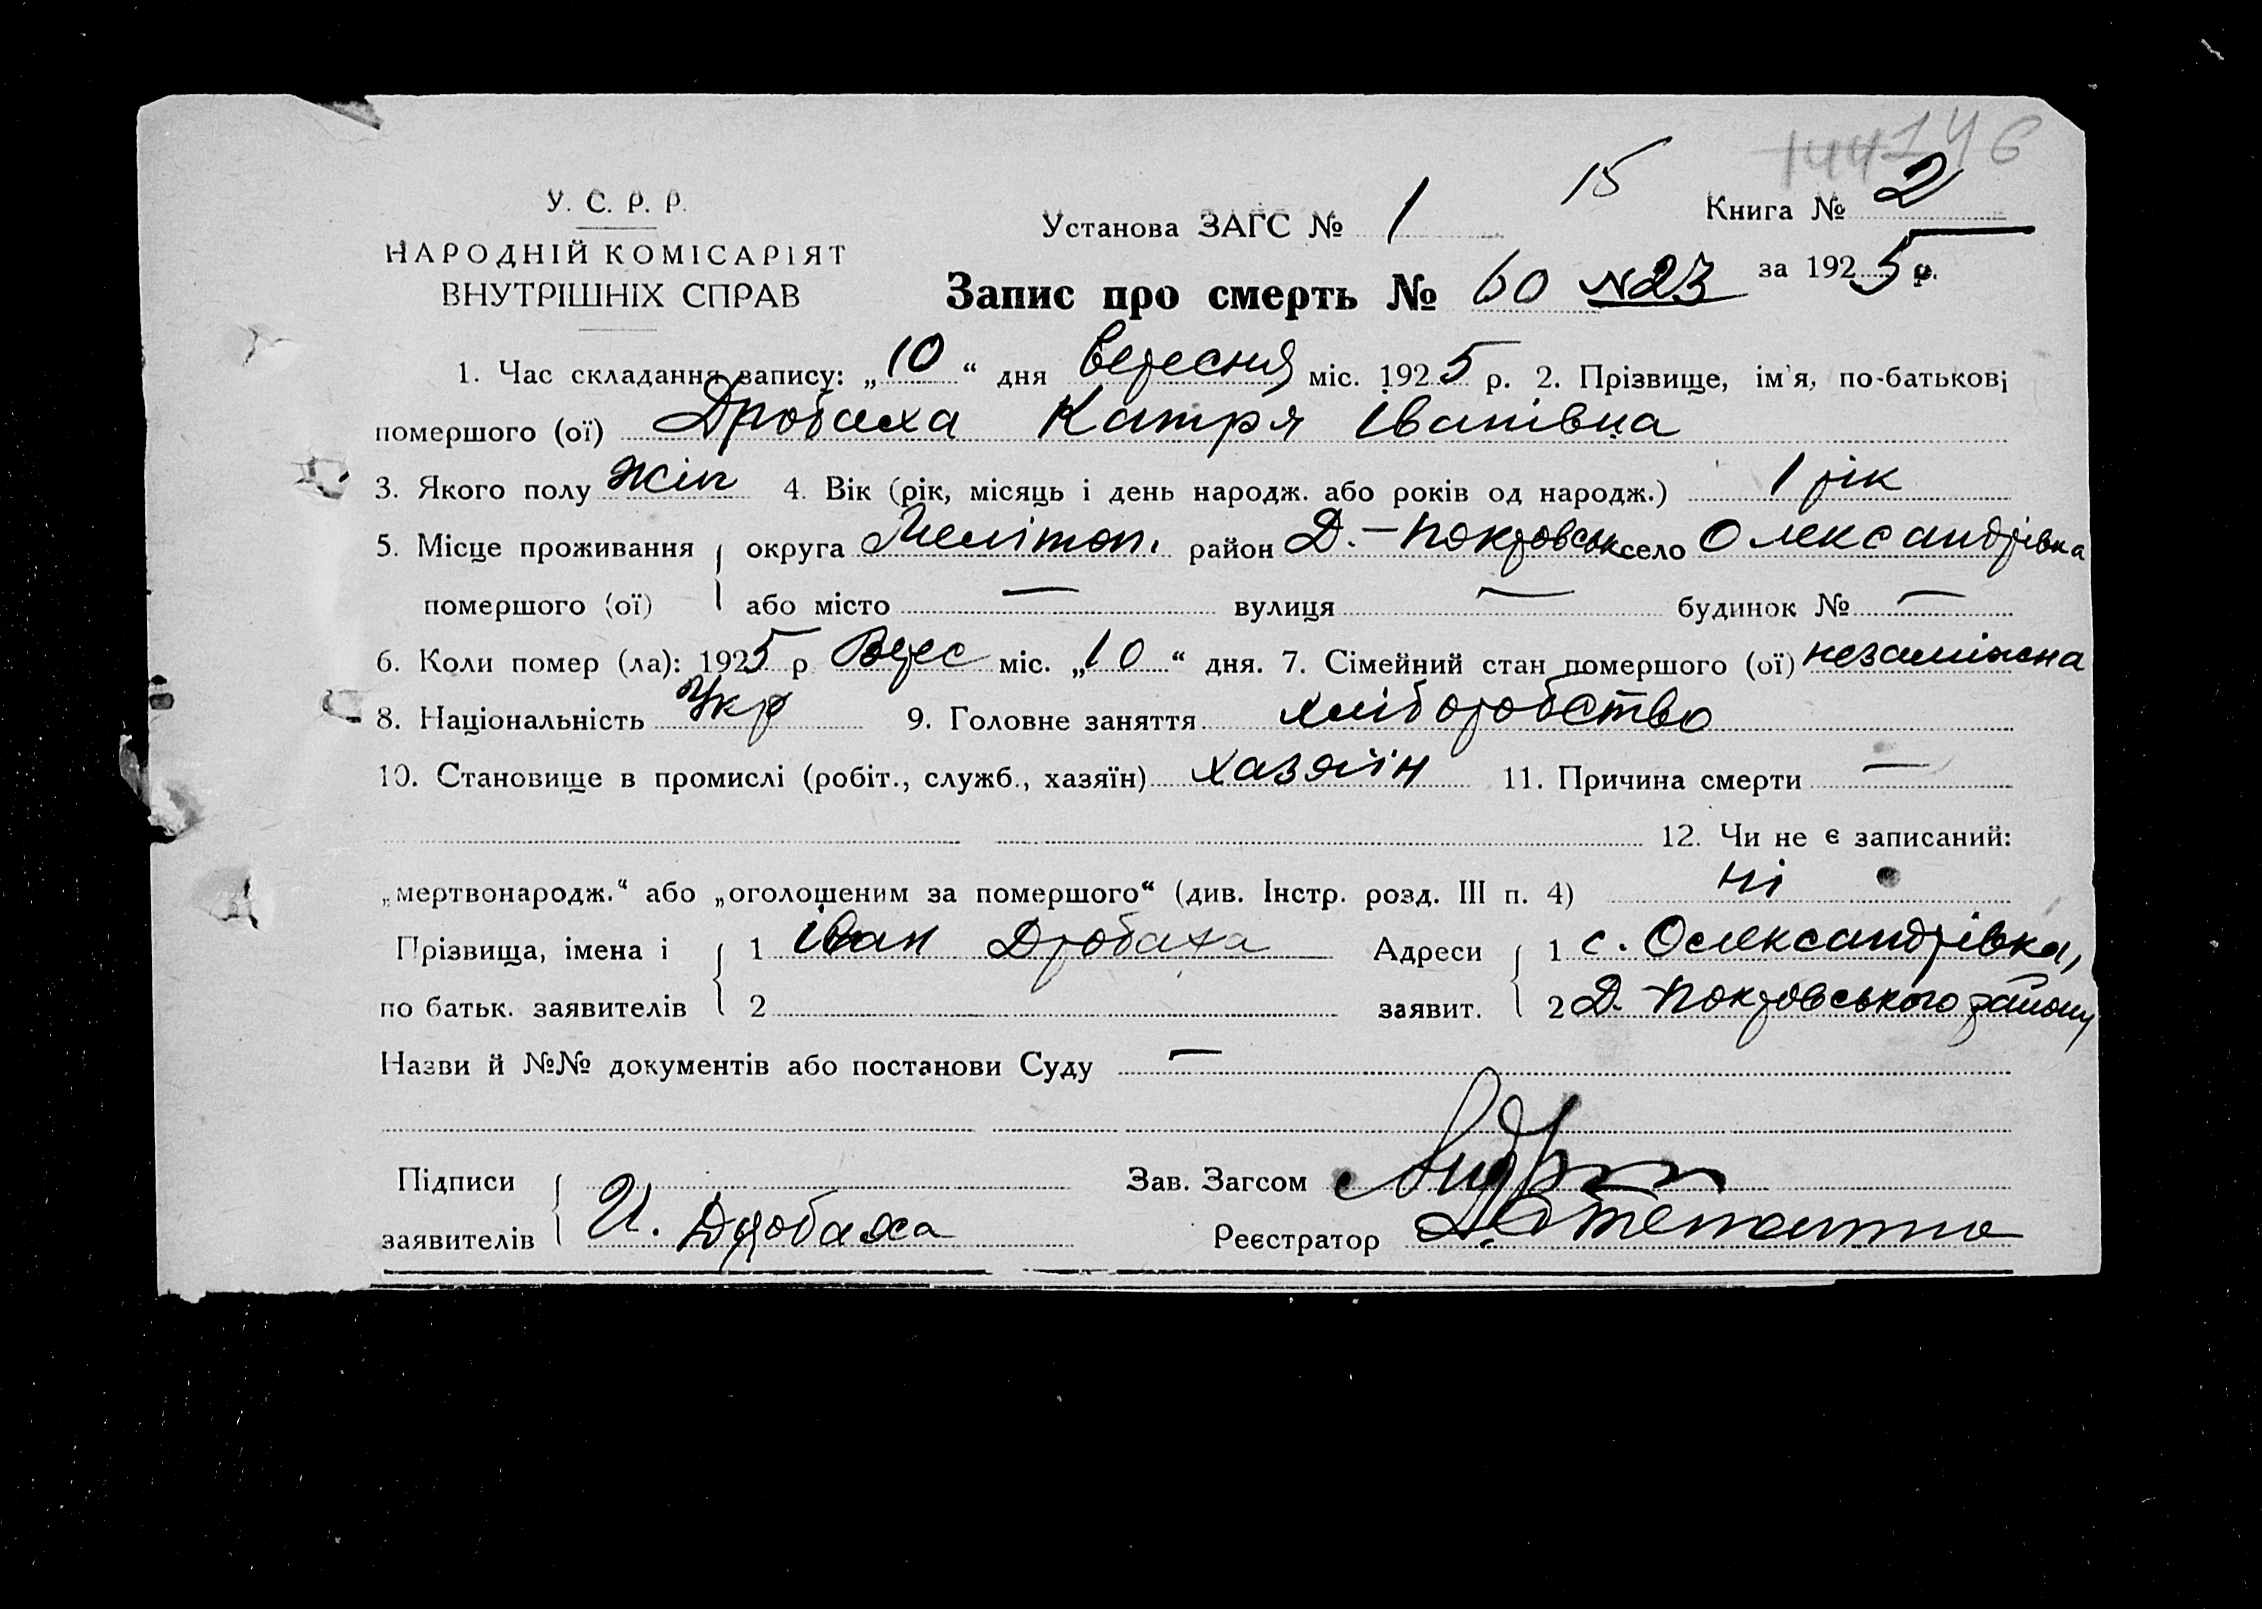 146
15
У. С. Р. Р.
Установа ЗАГС № 1 Книга № 2
НАРОДНІЙ КОМІСАРІЯТ
ВНУТРІШНІХ СПРАВ
Запис про смерть № 60 N23 за 1925 р.
1. Час складання запису: „10“ дня вересня міс. 1925 р. 2. Прізвище, ім'я, по-батькові
помершого (ої) Дробаха Катря Іванівна
3. Якого полу жін 4. Вік (рік, місяць і день народж. або років од народж.) 1 рік
5. Місце проживання округа Мелітоп. район Д.-Покровськ село Олександрівка
помершого (ої) або місто — вулиця — будинок № —
6. Коли помер (ла): 1925 р Верес міс. „10“ дня. 7. Сімейний стан помершого (ої) незаміжна
8. Національність Укр 9. Головне заняття хліборобство
10. Становище в промислі (робіт., служб., хазяїн) хазяїн 11. Причина смерти —
12. Чи не є записаний:
„мертвонародж.“ або „оголошеним за помершого“ (див. Інстр. розд. III п. 4) ні
Прізвища, імена і 1 Іван Дробаха Адреси 1 с. Олександрівка,
по батьк. заявителів 2 заявит. 2 Д. Покровського району
Назви й №№ документів або постанови Суду —
Підписи Зав. Загсом
заявителів И. Дробаха Реєстратор